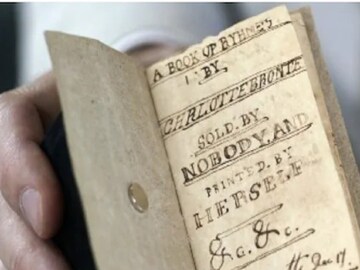 A BOOK OF RYHMES
BY
CHARLOTTE BRONTE
SOLD BY
NOBODY AND
PRINTED BY
HERSELF
&c. &c.